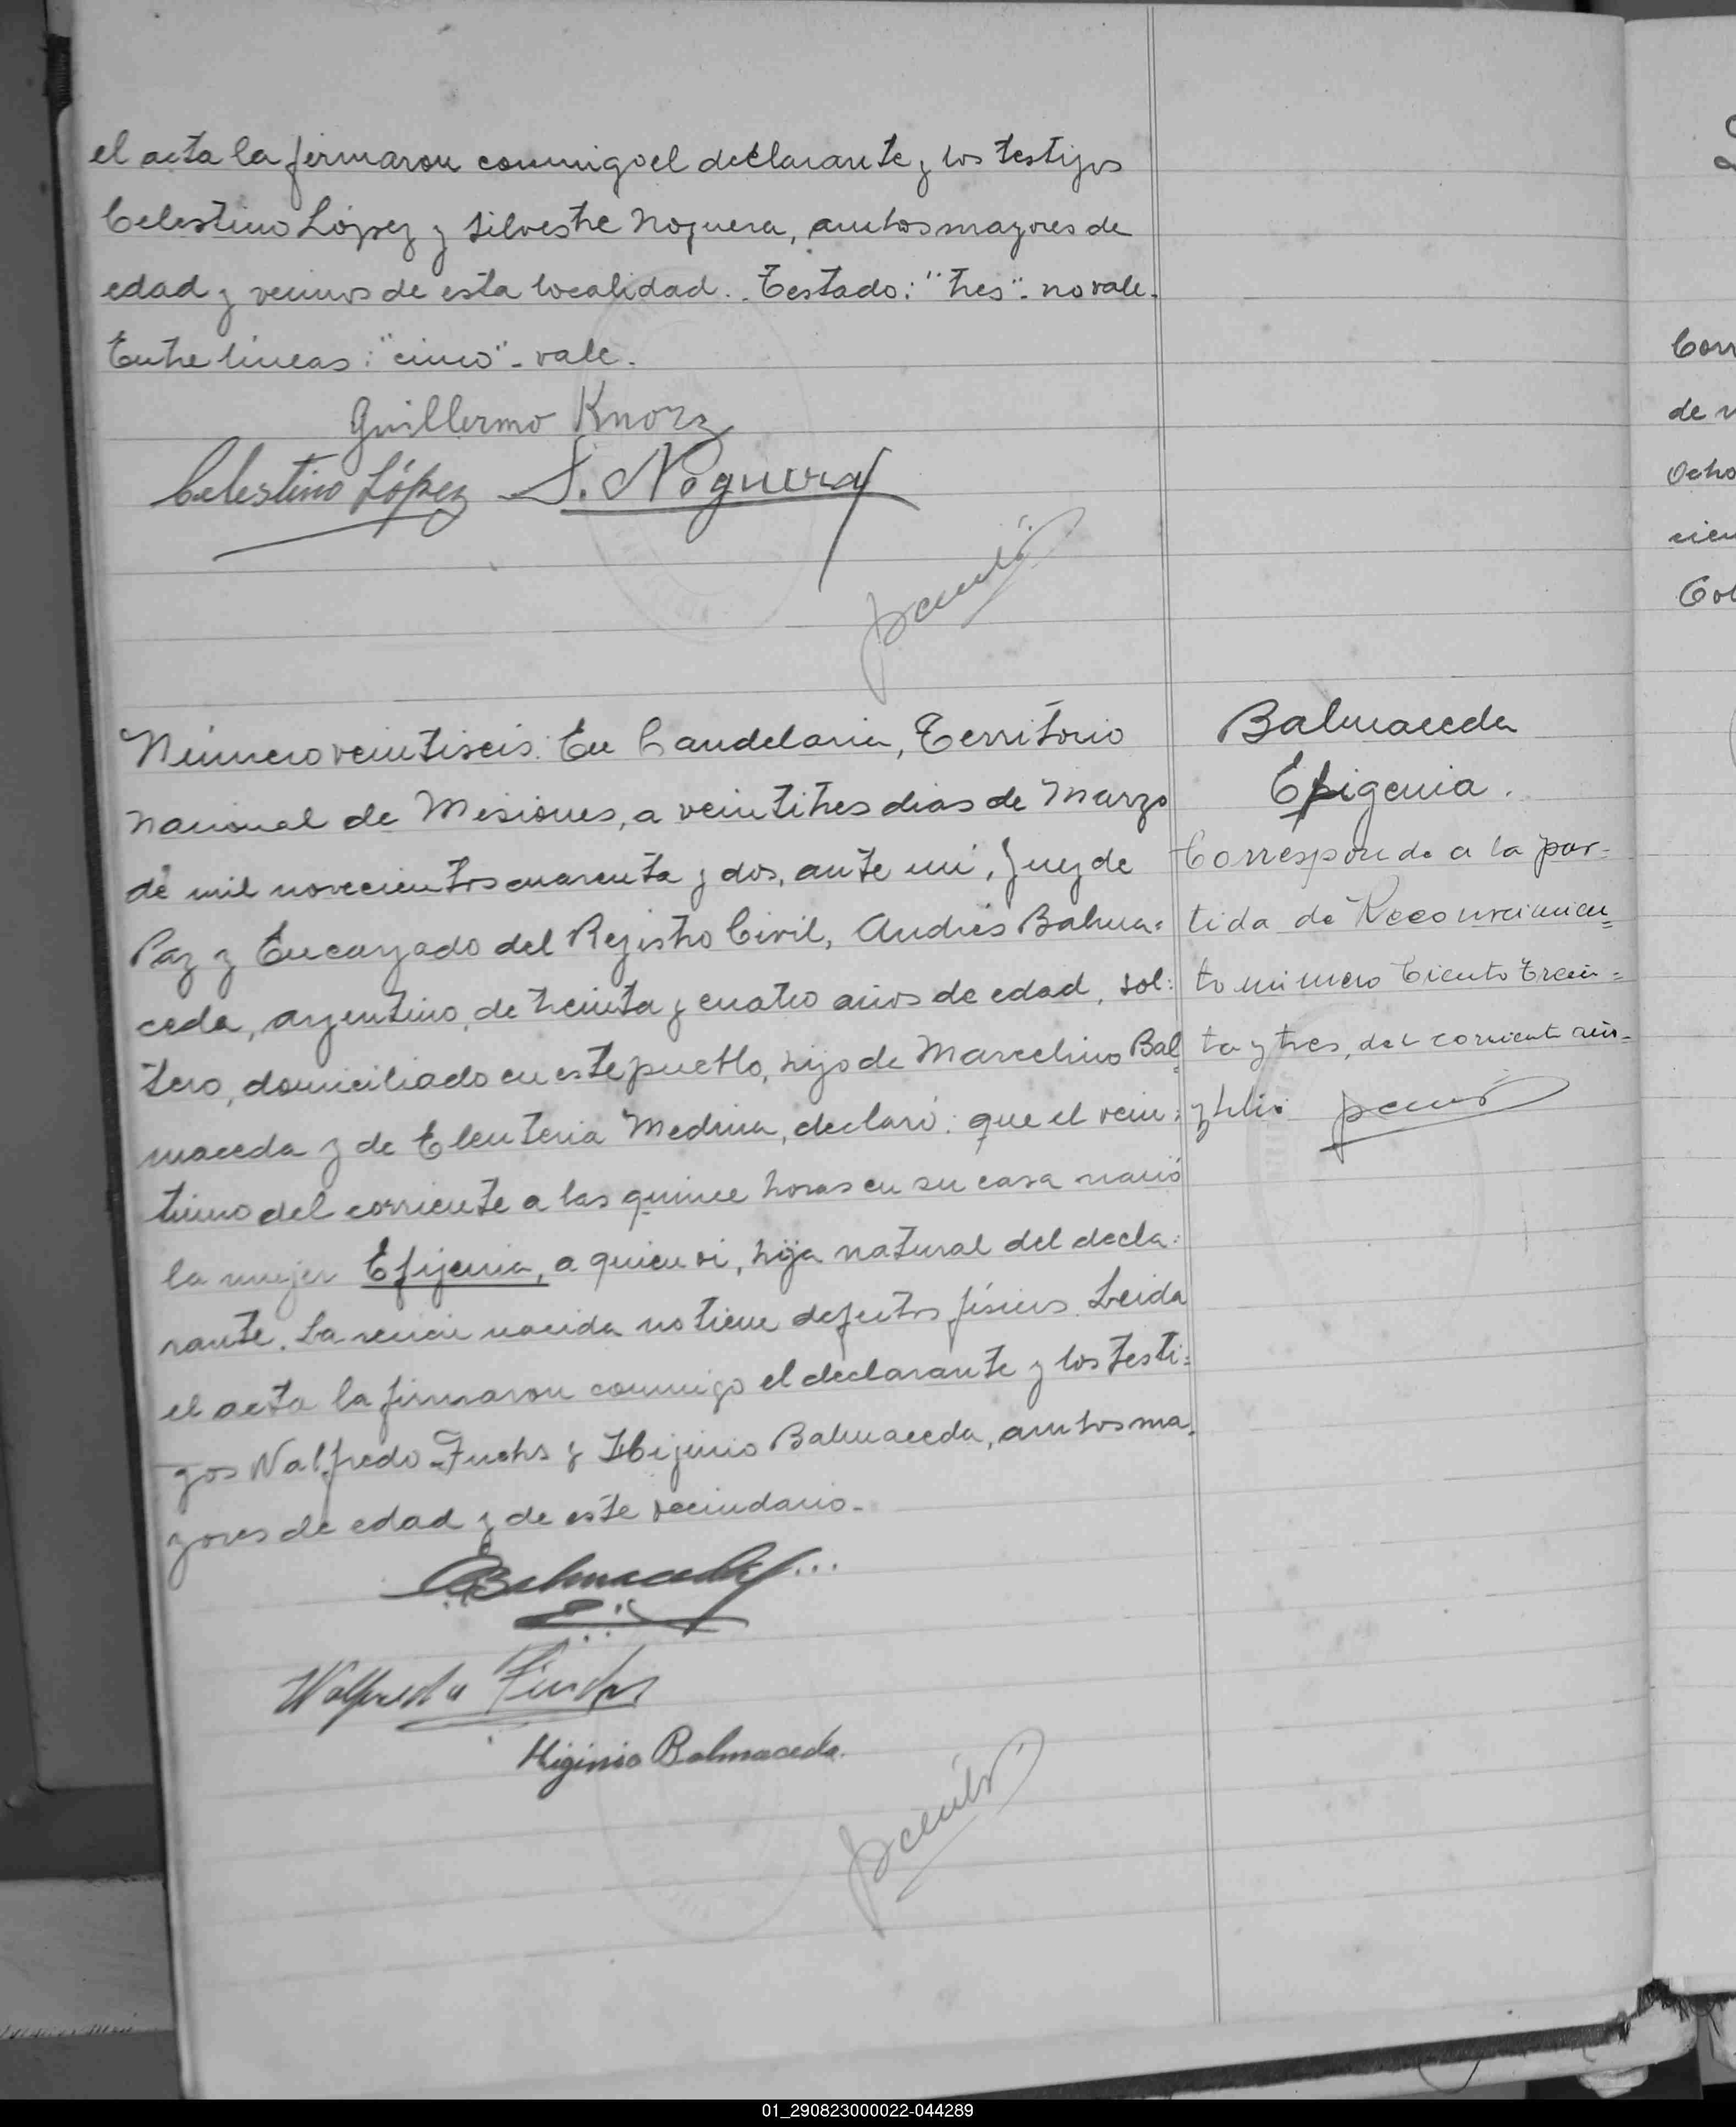 el acta la firmaron conmigo el declarante y los testigos
Celestino López y Silvestre Noguera, ambos mayores de
edad y vecinos de esta localidad.. Testado: "tres"- no vale.
Entre líneas: "cinco"- vale.
Guillermo Knorz
Celestino López S. Noguera
Número veintiseis: En Candelaria, Territorio
Nacional de Misiones, a veintitres dias de Marzo
de mil novecientos cuarenta y dos, ante mi, Juez de
Paz y Encargado del Registro Civil, Andrés Balma=
ceda, argentino, de treinta y cuatro años de edad, sol=
tero, domiciliado en este pueblo, hijo de Marcelino Bal=
maceda y de Eleuteria Medina, declaró: que el vein=
tiuno del corriente a las quince horas en su casa nació
la mujer Efijenia, a quien vi, hija natural del decla=
rante. La recien nacida no tiene defectos físicos. Leida
el acta la firmaron conmigo el declarante y los testi=
gos Walfredo Fuchs y Hijinio Balmaceda, ambos ma=
yores de edad y de este vecindario.-
Balmaceda
Walfredo Fuchs
Higinio Balmaceda.
Balmaceda
Efigenia.
Corresponde a la par=
tida de Reconocimien=
to número Ciento Trein=
ta y tres, del corriente
Corr
de
Ocho
cien
01_290823000022-044289